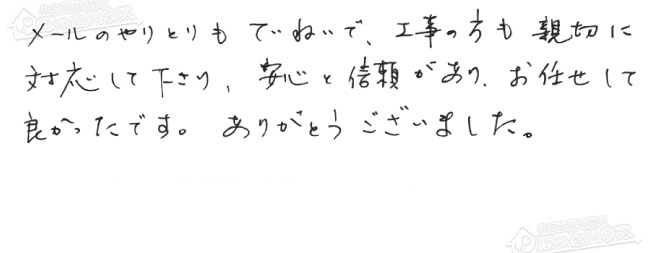 メールのやりとりもていねいで、工事の方も親切に
対応して下さり、安心と信頼があり、お任せして
良かったです。ありがとうございました。